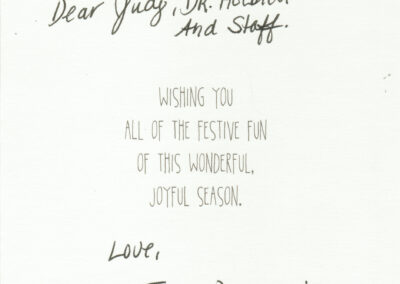 Dear Judy, DR.
And Staff.
WISHING YOU
ALL OF THE FESTIVE FUN
OF THIS WONDERFUL,
JOYFUL SEASON.
Love,